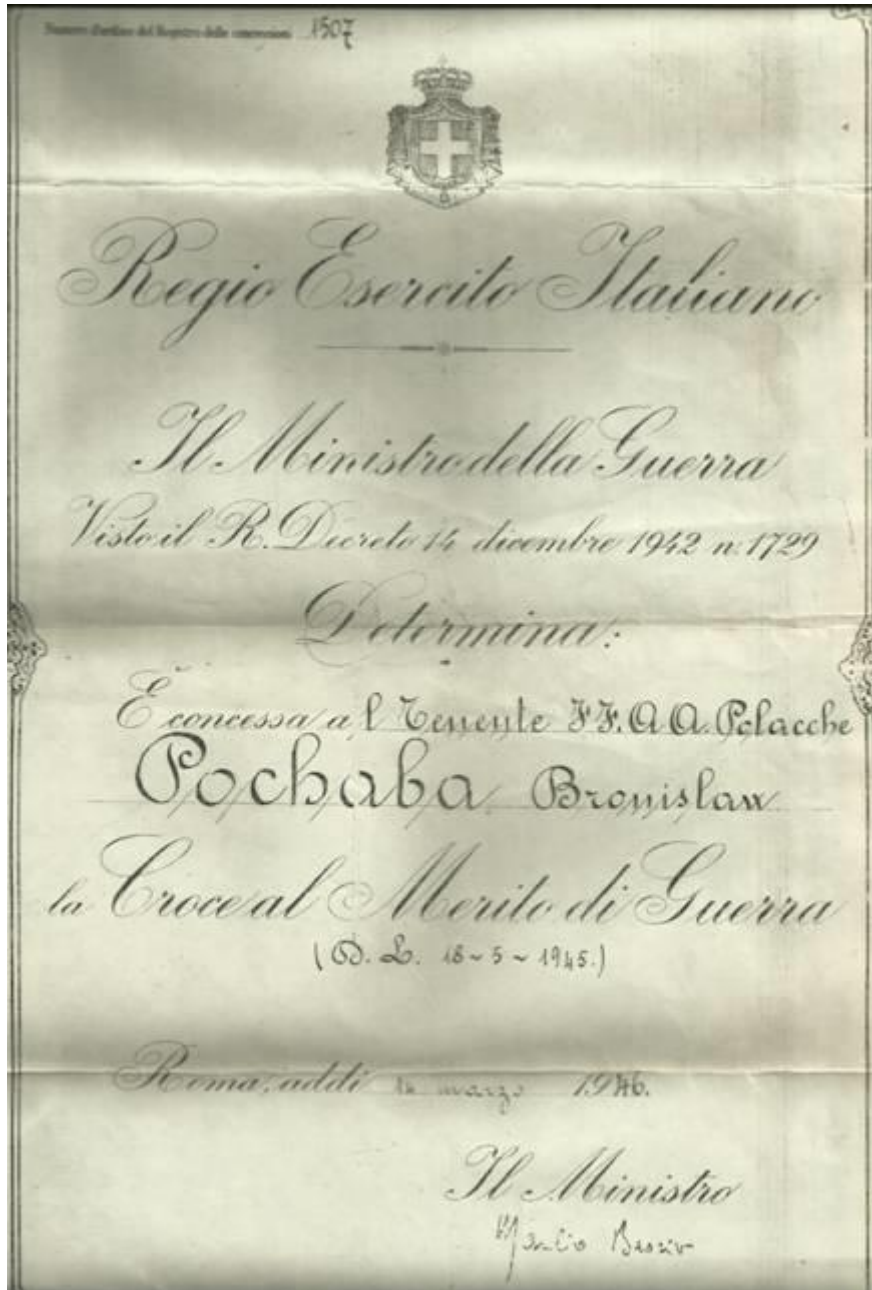 Numero d'ordine del Registro delle concessioni 1507
Regio Esercito Italiano
Il Ministro della Guerra
Visto il R. Decreto 14 dicembre 1942 n. 1729
Determina:
È concessa al Tenente FF. AA. Polacche
Pochaba Bronislaw
la Croce al Merito di Guerra
(D. L. 18-5-1945.)
Roma, addì 14 marzo 1946.
Il Ministro
Manlio Brosio